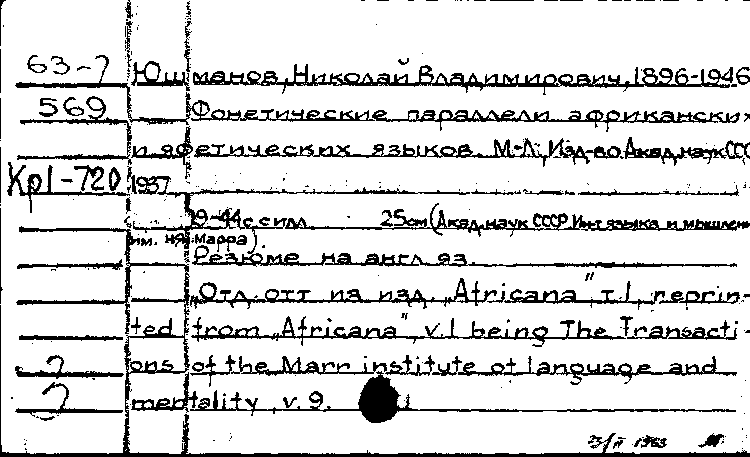 63-7 Юшманов, Николай Владимирович, 1896-1946
569 Фонетические параллели африканских
и яфетических языков. М-Л., Изд-во Акад. наук ССС
Кр1-720 1937
19-44 с. силл. 25см (Акад. наук СССР. Инт языка и мышлен
им. НЯ. Марра)
Резюме на англ яз.
"Отд. отт из изд. „Africana", т. I, reprin-
ted from „Africana", v. I being The Transacti-
ons of the Marr institute of language and
mentality, v. 9.
1963